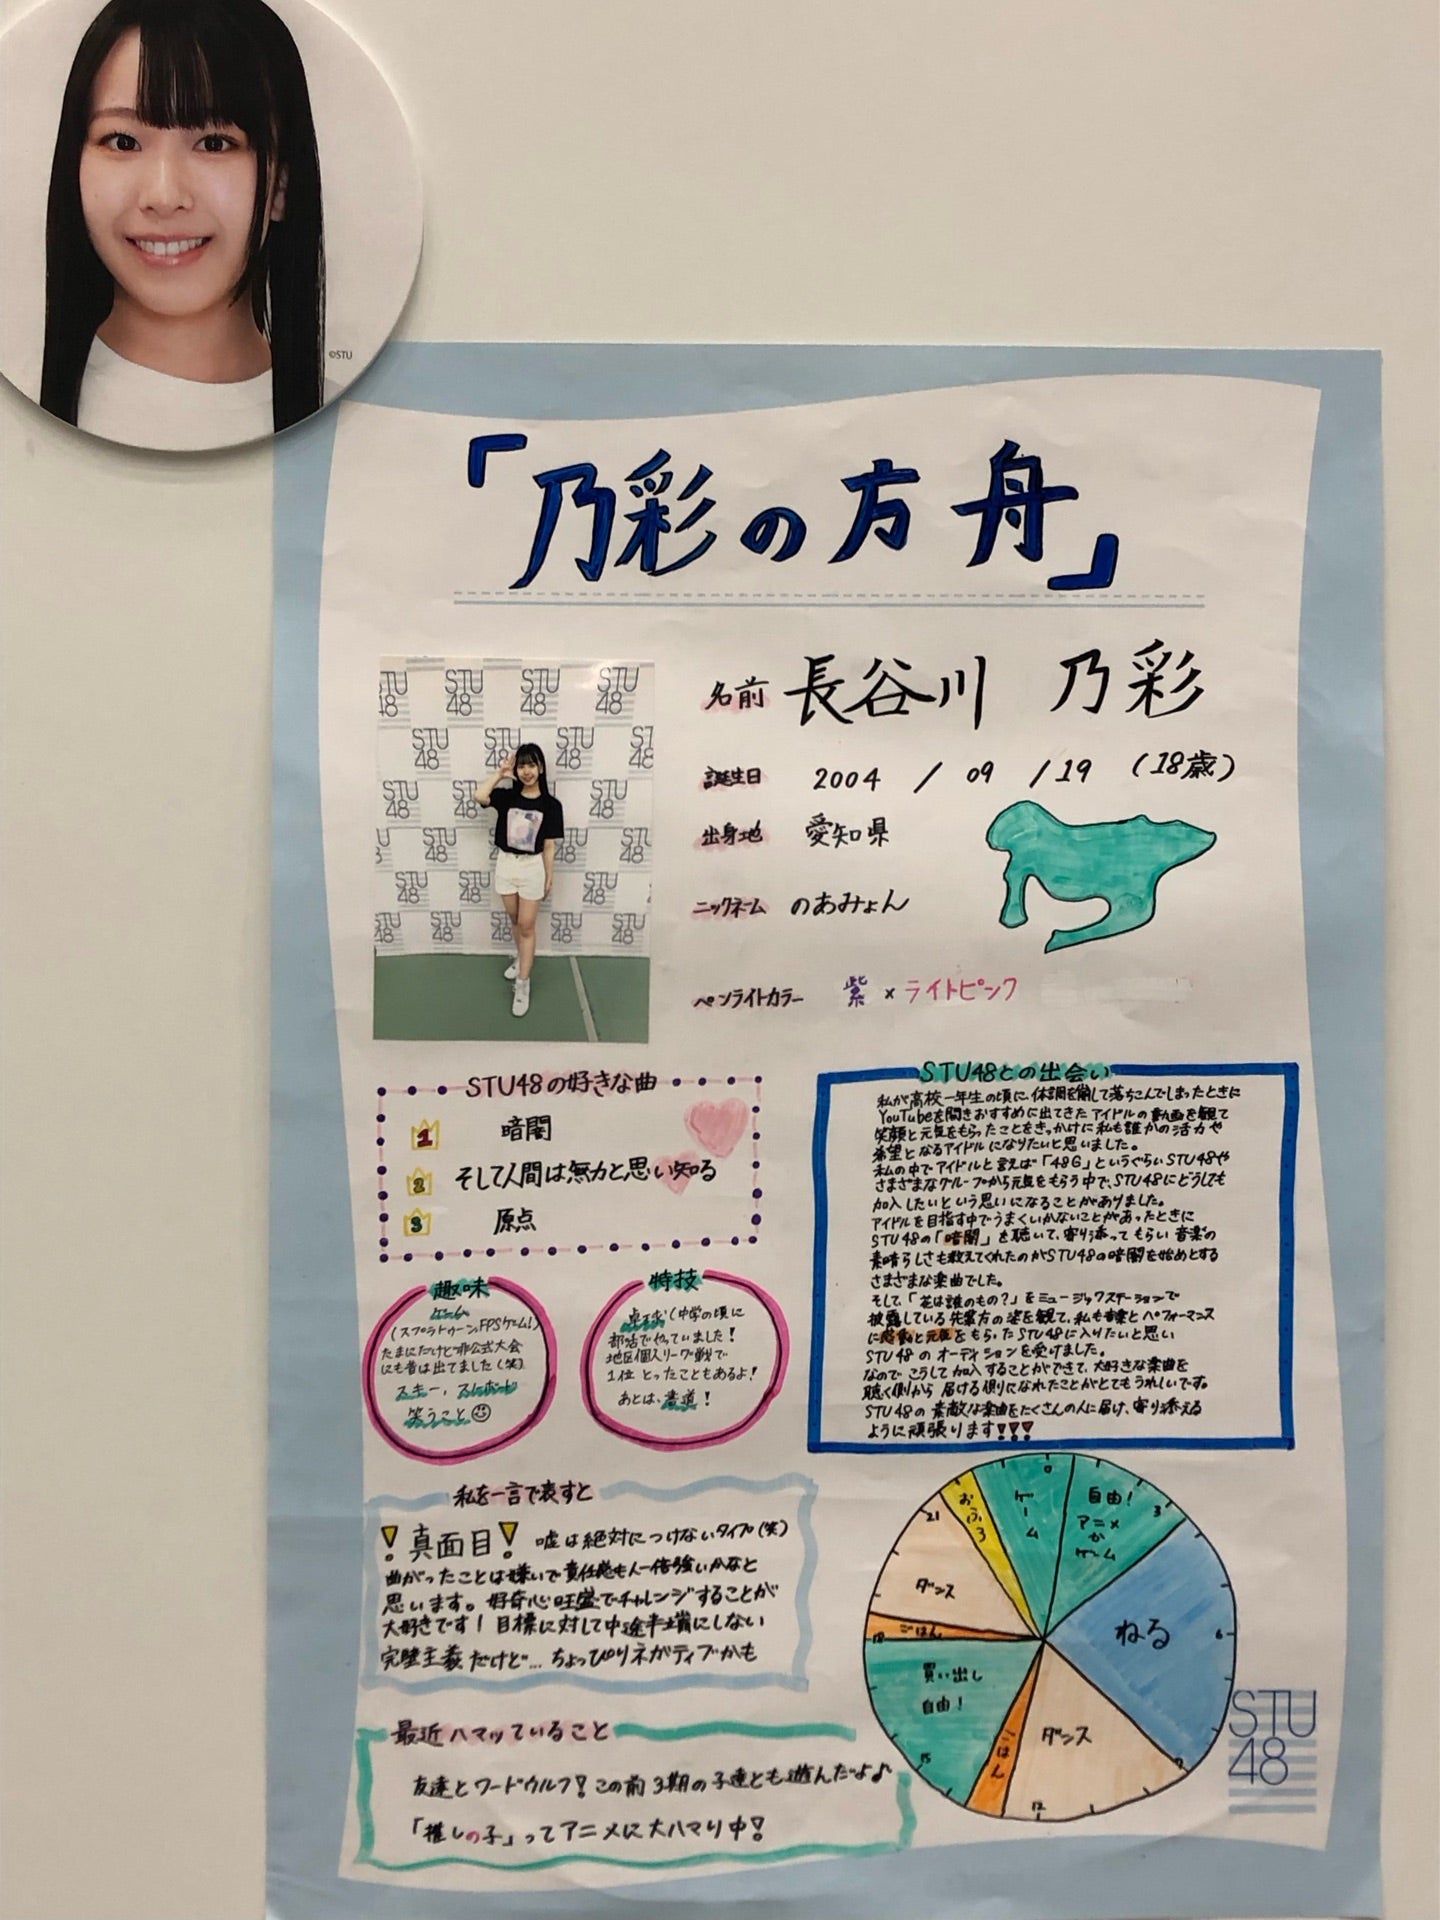 ©STU
「乃彩の方舟」
名前 長谷川 乃彩
誕生日 2004 / 09 / 19 (18歳)
出身地 愛知県
ニックネーム のあみょん
ペンライトカラー 紫×ライトピンク
STU48の好きな曲
1 暗闇
2 そして人間は無力と思い知る
3 原点
STU48との出会い
私が高校一年生の頃に、体調を崩して落ちこんでしまったときに
YouTubeを開きおすすめに出てきたアイドルの動画を観て
笑顔と元気をもらったことをきっかけに私も誰かの活力や
希望となるアイドルになりたいと思いました。
私の中でアイドルと言えば「48G」というぐらいSTU48や
さまざまなグループから元気をもらう中で、STU48にどうしても
加入したいという思いになることがありました。
アイドルを目指す中でうまくいかないことがあったときに
STU48の「暗闇」を聴いて、寄り添ってもらい音楽の
素晴らしさも教えてくれたのがSTU48の暗闇を始めとする
さまざまな楽曲でした。
そして、「花は誰のもの?」をミュージックステーションで
披露している先輩方の姿を観て、私も音楽とパフォーマンス
に感動と元気をもらったSTU48に入りたいと思い
STU48のオーディションを受けました。
なのでこうして加入することができて、大好きな楽曲を
聴く側から届ける側になれたことがとてもうれしいです。
STU48の素敵な楽曲をたくさんの人に届け、寄り添える
ように頑張ります!!!
趣味
ゲーム
(スプラトゥーン、FPSゲーム!)
たまにだけど非公式大会
にも昔は出てました(笑)
スキー、スノーボード
笑うこと
特技
卓球(中学の頃に
部活でやっていました!
地区個人リーグ戦で
1位とったこともあるよ!
あとは、書道!
私を一言で表すと
!真面目! 嘘は絶対につけないタイプ(笑)
曲がったことは嫌いで責任感も人一倍強いかなと
思います。好奇心旺盛でチャレンジすることが
大好きです!目標に対して中途半端にしない
完璧主義だけど...ちょっぴりネガティブかも
最近ハマッていること
友達とワードウルフ!この前3期の子達とも遊んだよ♪
「推しの子」ってアニメに大ハマり中!
0
3
6
9
12
15
18
21
ゲーム
自由!
アニメ
か
ゲーム
ねる
ダンス
ごはん
買い出し
自由!
ごはん
ダンス
おふろ
STU
48